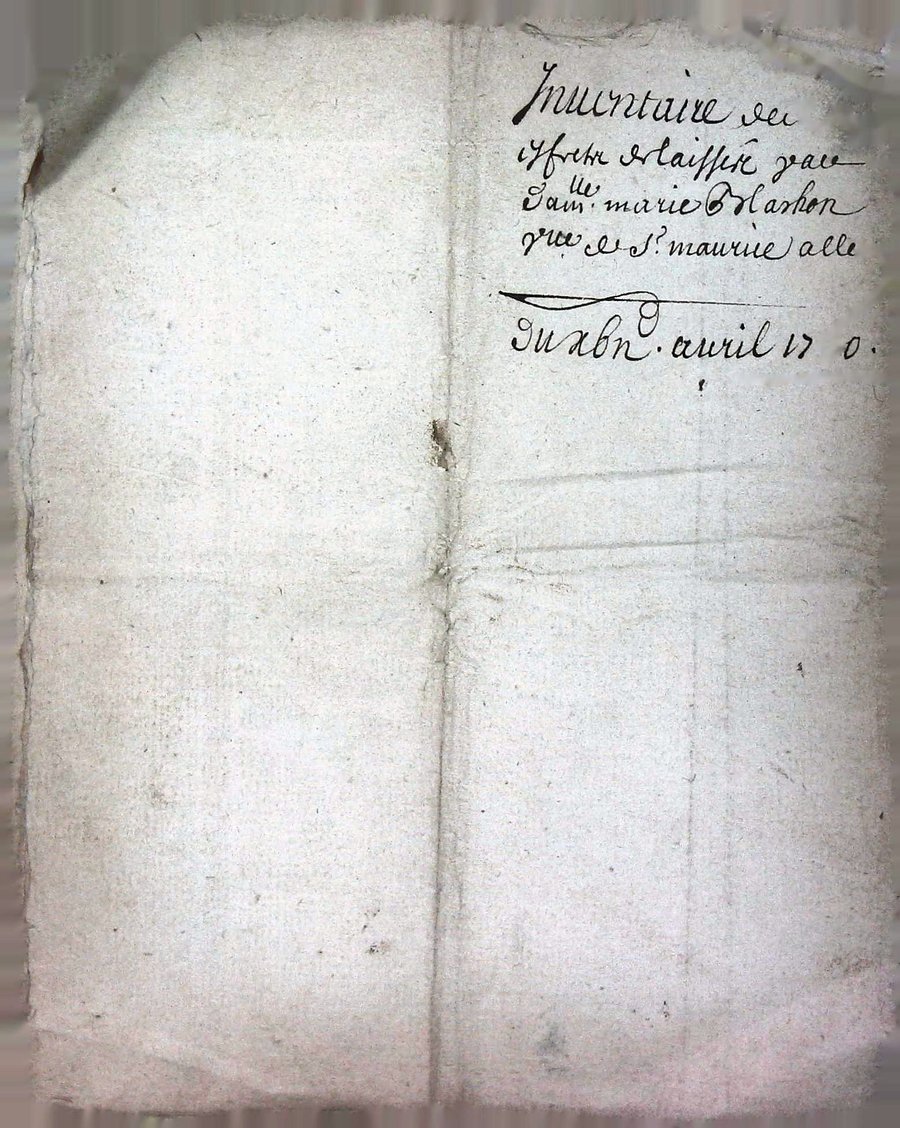 Inventaire des
effects delaissés par
dam.lle marie
vve de Sr. maurice alle
Du avril 17 0.